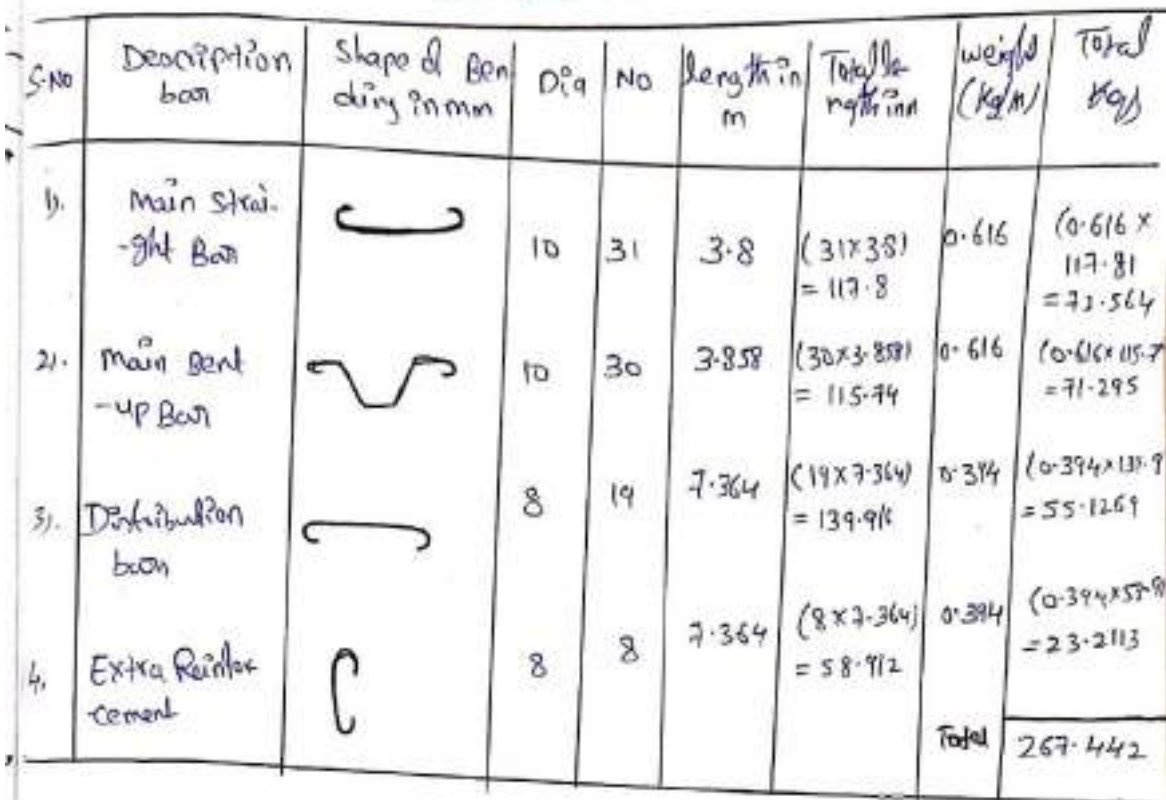 S.No
Description
bar
Shape of Ben
ding in mm
Dia
No
length in
m
Total le
ngth in m
weight
(Kg/m)
Total
Kgs
1).
Main Strai-
-ght Bar
10
31
3.8
(31x3.8)
= 117.8
0.616
(0.616 x
117.81
=73.564
2).
Main Bent
-up Bar
10
30
3.858
(30x3.858)
= 115.74
0.616
(0.616x115.7
=71.295
3).
Distribution
bar
8
19
7.364
(19x7.364)
= 139.916
0.394
(0.394x139.9
=55.1269
4.
Extra Reinfor
-cement
8
8
7.364
(8x7.364)
= 58.912
0.394
(0.394x
=23.2113
Total
267.442